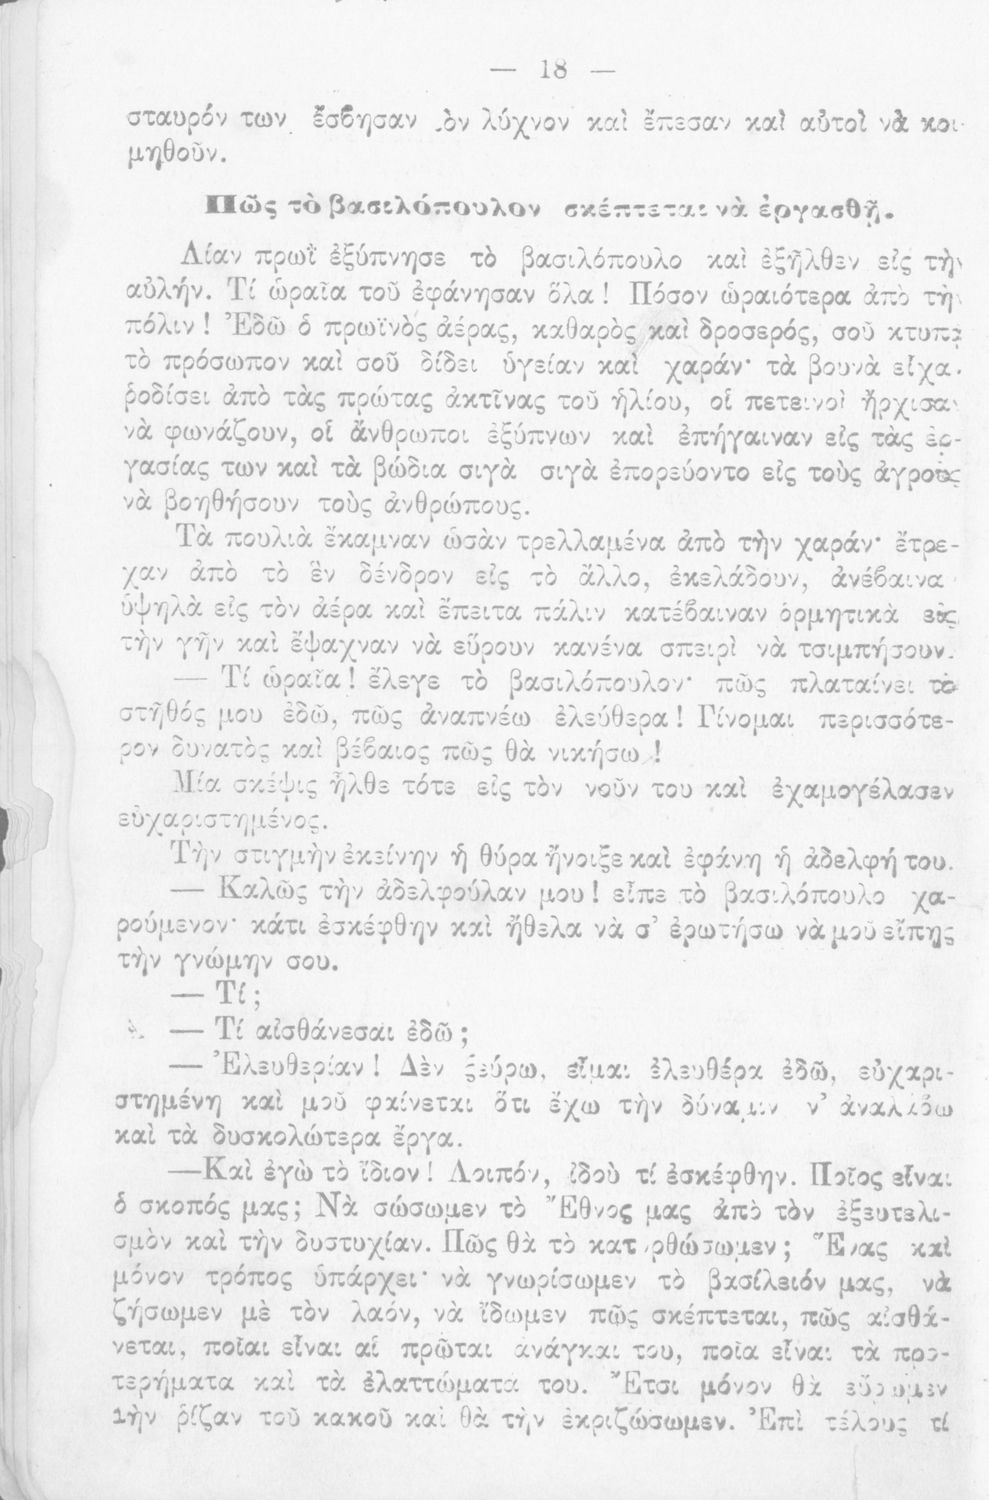 — 18 —
σταυρόν των ἔσβησαν τὸν λύχνον καὶ ἔπεσαν καὶ αὐτοὶ νὰ κοι-
μηθοῦν.
Πῶς τὸ βασιλόπουλον σκέπτεται νὰ ἐργασθῇ.
Λίαν πρωῒ ἐξύπνησε τὸ βασιλόπουλο καὶ ἐξῆλθεν εἰς τὴν
αὐλήν. Τί ὡραῖα τοῦ ἐφάνησαν ὅλα! Πόσον ὡραιότερα ἀπὸ τὴν
πόλιν! Ἐδῶ ὁ πρωϊνὸς ἀέρας, καθαρὸς καὶ δροσερός, σοῦ κτυπᾷ
τὸ πρόσωπον καὶ σοῦ δίδει ὑγείαν καὶ χαράν· τὰ βουνὰ εἶχαν
ῥοδίσει ἀπὸ τὰς πρώτας ἀκτῖνας τοῦ ἡλίου, οἱ πετεινοὶ ἤρχισαν
νὰ φωνάζουν, οἱ ἄνθρωποι ἐξύπνων καὶ ἐπήγαιναν εἰς τὰς ἐρ-
γασίας των καὶ τὰ βώδια σιγὰ σιγὰ ἐπορεύοντο εἰς τοὺς ἀγροὺς
νὰ βοηθήσουν τοὺς ἀνθρώπους.
Τὰ πουλιὰ ἔκαμναν ὡσὰν τρελλαμένα ἀπὸ τὴν χαράν· ἔτρε-
χαν ἀπὸ τὸ ἓν δένδρον εἰς τὸ ἄλλο, ἐκελάδουν, ἀνέβαιναν
ὑψηλὰ εἰς τὸν ἀέρα καὶ ἔπειτα πάλιν κατέβαιναν ὁρμητικὰ εἰς
τὴν γῆν καὶ ἔψαχναν νὰ εὕρουν κανένα σπειρὶ νὰ τσιμπήσουν.
— Τί ὡραῖα! ἔλεγε τὸ βασιλόπουλον· πῶς πλαταίνει τὸ
στῆθός μου ἐδῶ, πῶς ἀναπνέω ἐλεύθερα! Γίνομαι περισσότε-
ρον δυνατὸς καὶ βέβαιος πῶς θὰ νικήσω!
Μία σκέψις ἦλθε τότε εἰς τὸν νοῦν του καὶ ἐχαμογέλασεν
εὐχαριστημένος.
Τὴν στιγμὴν ἐκείνην ἡ θύρα ἤνοιξε καὶ ἐφάνη ἡ ἀδελφή του.
— Καλῶς τὴν ἀδελφούλαν μου! εἶπε τὸ βασιλόπουλο χα-
ρούμενον· κάτι ἐσκέφθην καὶ ἤθελα νὰ σ' ἐρωτήσω νὰ μοῦ εἴπῃς
τὴν γνώμην σου.
— Τί;
— Τί αἰσθάνεσαι ἐδῶ;
— Ἐλευθερίαν! Δὲν ξεύρω, εἶμαι ἐλευθέρα ἐδῶ, εὐχαρι-
στημένη καὶ μοῦ φαίνεται ὅτι ἔχω τὴν δύναμιν ν' ἀναλάβω
καὶ τὰ δυσκολώτερα ἔργα.
—Καὶ ἐγὼ τὸ ἴδιον! Λοιπόν, ἰδοὺ τί ἐσκέφθην. Ποῖος εἶναι
ὁ σκοπός μας; Νὰ σώσωμεν τὸ Ἔθνος μας ἀπὸ τὸν ἐξευτελι-
σμὸν καὶ τὴν δυστυχίαν. Πῶς θὰ τὸ κατορθώσωμεν; Ἕνας καὶ
μόνον τρόπος ὑπάρχει· νὰ γνωρίσωμεν τὸ βασίλειόν μας, νὰ
ζήσωμεν μὲ τὸν λαόν, νὰ ἴδωμεν πῶς σκέπτεται, πῶς αἰσθά-
νεται, ποῖαι εἶναι αἱ πρῶται ἀνάγκαι του, ποῖα εἶναι τὰ προ-
τερήματα καὶ τὰ ἐλαττώματά του. Ἔτσι μόνον θὰ εὕρωμεν
τὴν ῥίζαν τοῦ κακοῦ καὶ θὰ τὴν ἐκριζώσωμεν. Ἐπὶ τέλους τί